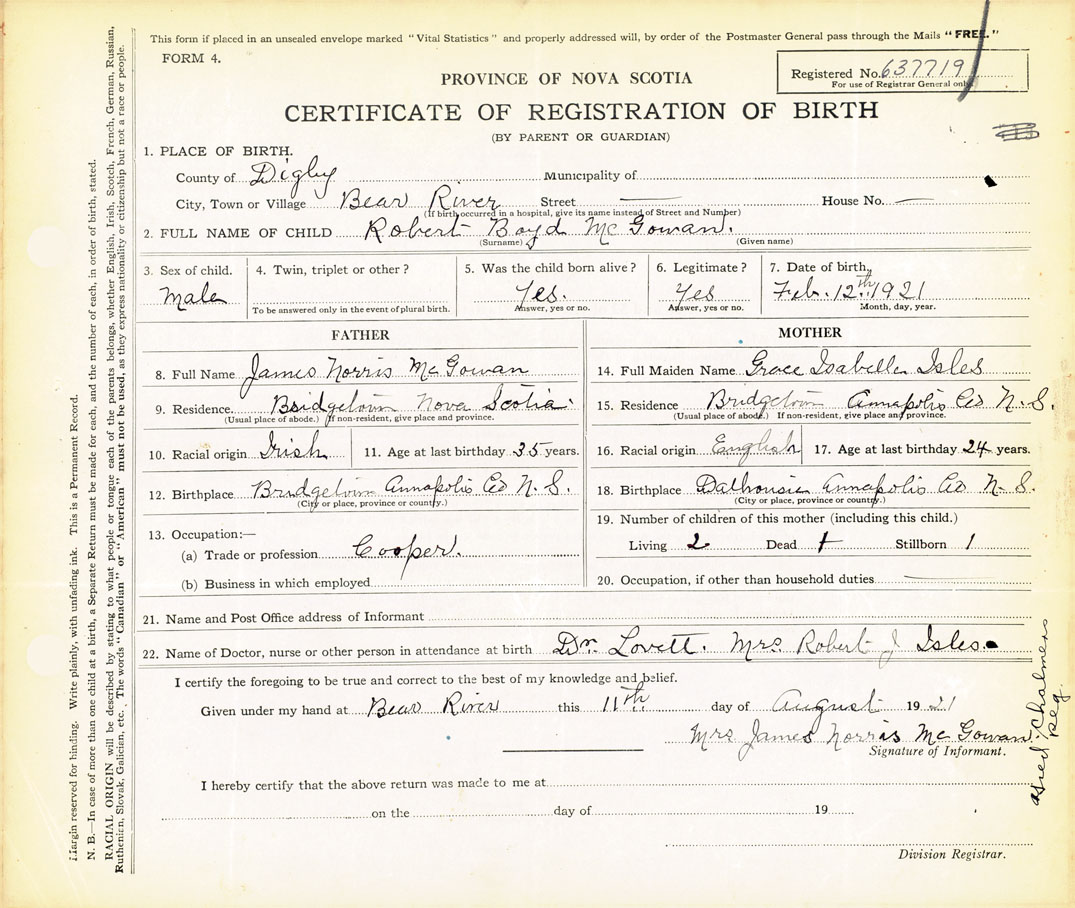 This form if placed in an unsealed envelope marked "Vital Statistics" and properly addressed will, by order of the Postmaster General pass through the Mails "FREE."
FORM 4.
Registered No. 637719
For use of Registrar General only
PROVINCE OF NOVA SCOTIA
CERTIFICATE OF REGISTRATION OF BIRTH
(BY PARENT OR GUARDIAN)
1. PLACE OF BIRTH.
County of Digby Municipality of
City, Town or Village Bear River Street — House No. —
(If birth occurred in a hospital, give its name instead of Street and Number)
2. FULL NAME OF CHILD Robert Boyd McGowan.
(Surname) (Given name)
3. Sex of child. 4. Twin, triplet or other? 5. Was the child born alive? 6. Legitimate? 7. Date of birth,
Male Yes. Yes Feb. 12th 1921
To be answered only in the event of plural birth. Answer, yes or no. Answer, yes or no. Month, day, year.
FATHER
8. Full Name James Norris McGowan
9. Residence. Bridgetown Nova Scotia
(Usual place of abode.) If non-resident, give place and province.
10. Racial origin Irish 11. Age at last birthday 35 years.
12. Birthplace Bridgetown Annapolis Co N. S.
(City or place, province or country.)
13. Occupation:—
(a) Trade or profession Cooper.
(b) Business in which employed
MOTHER
14. Full Maiden Name Grace Isabelle Isles
15. Residence Bridgetown Annapolis Co N. S.
(Usual place of abode.) If non-resident, give place and province.
16. Racial origin English 17. Age at last birthday 24 years.
18. Birthplace Dalhousie Annapolis Co N. S.
(City or place, province or country.)
19. Number of children of this mother (including this child.)
Living 2 Dead Stillborn 1
20. Occupation, if other than household duties —
21. Name and Post Office address of Informant
22. Name of Doctor, nurse or other person in attendance at birth Dr. Lovett. Mrs Robert J Isles.
I certify the foregoing to be true and correct to the best of my knowledge and belief.
Given under my hand at Bear River this 11th day of August 1921
Mrs James Norris McGowan.
Signature of Informant.
I hereby certify that the above return was made to me at
on the day of 19
Division Registrar.
Margin reserved for binding. Write plainly, with unfading ink. This is a Permanent Record.
N. B.—In case of more than one child at a birth, a Separate Return must be made for each, and the number of each, in order of birth, stated.
RACIAL ORIGIN will be described by stating to what people or tongue each of the parents belongs, whether English, Irish, Scotch, French, German, Russian,
Ruthenian, Slovak, Galician, etc. The words "Canadian" or "American" must not be used, as they express nationality or citizenship but not a race or people.
Chalmers
Reg.